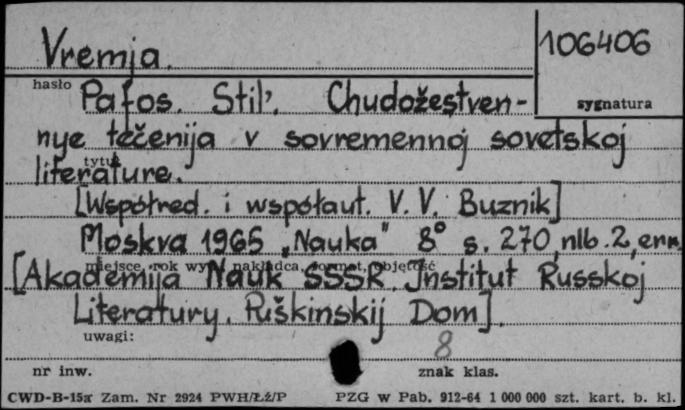 Vremja.
106406
hasło
sygnatura
Pafos. Stil'. Chudožestven-
nye tečenija v sovremennoj sovetskoj
tytuł
literature.
[Współred. i współaut. V. V. Buznik]
Moskva 1965 „Nauka" 8° s. 270, nlb. 2, err.
miejsce, rok wyd. nakładca, format, objętość
[Akademija Nauk SSSR. Institut Russkoj
Literatury. Puškinskij Dom].
uwagi:
8
nr inw.
znak klas.
CWD-B-15a Zam. Nr 2924 PWH/Łż/P PZG w Pab. 912-64 1 000 000 szt. kart. b. kl.